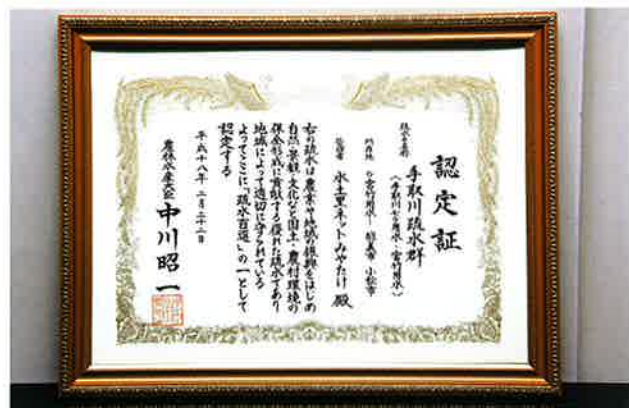 認定証
疏水の名称
手取川疏水群
(手取川七ヶ用水・宮竹用水)
所在地 宮竹用水ー能美市 小松市
管理者 水土里ネットみやたけ 殿
右の疏水は農業や地域の振興をはじめ
自然・景観・文化など国土・農村環境の
保全形成に貢献する優れた疏水であり
地域によって適切に守られている
よってここに「疏水百選」の一として
認定する
平成十八年 二月二十二日
農林水産大臣 中川昭一